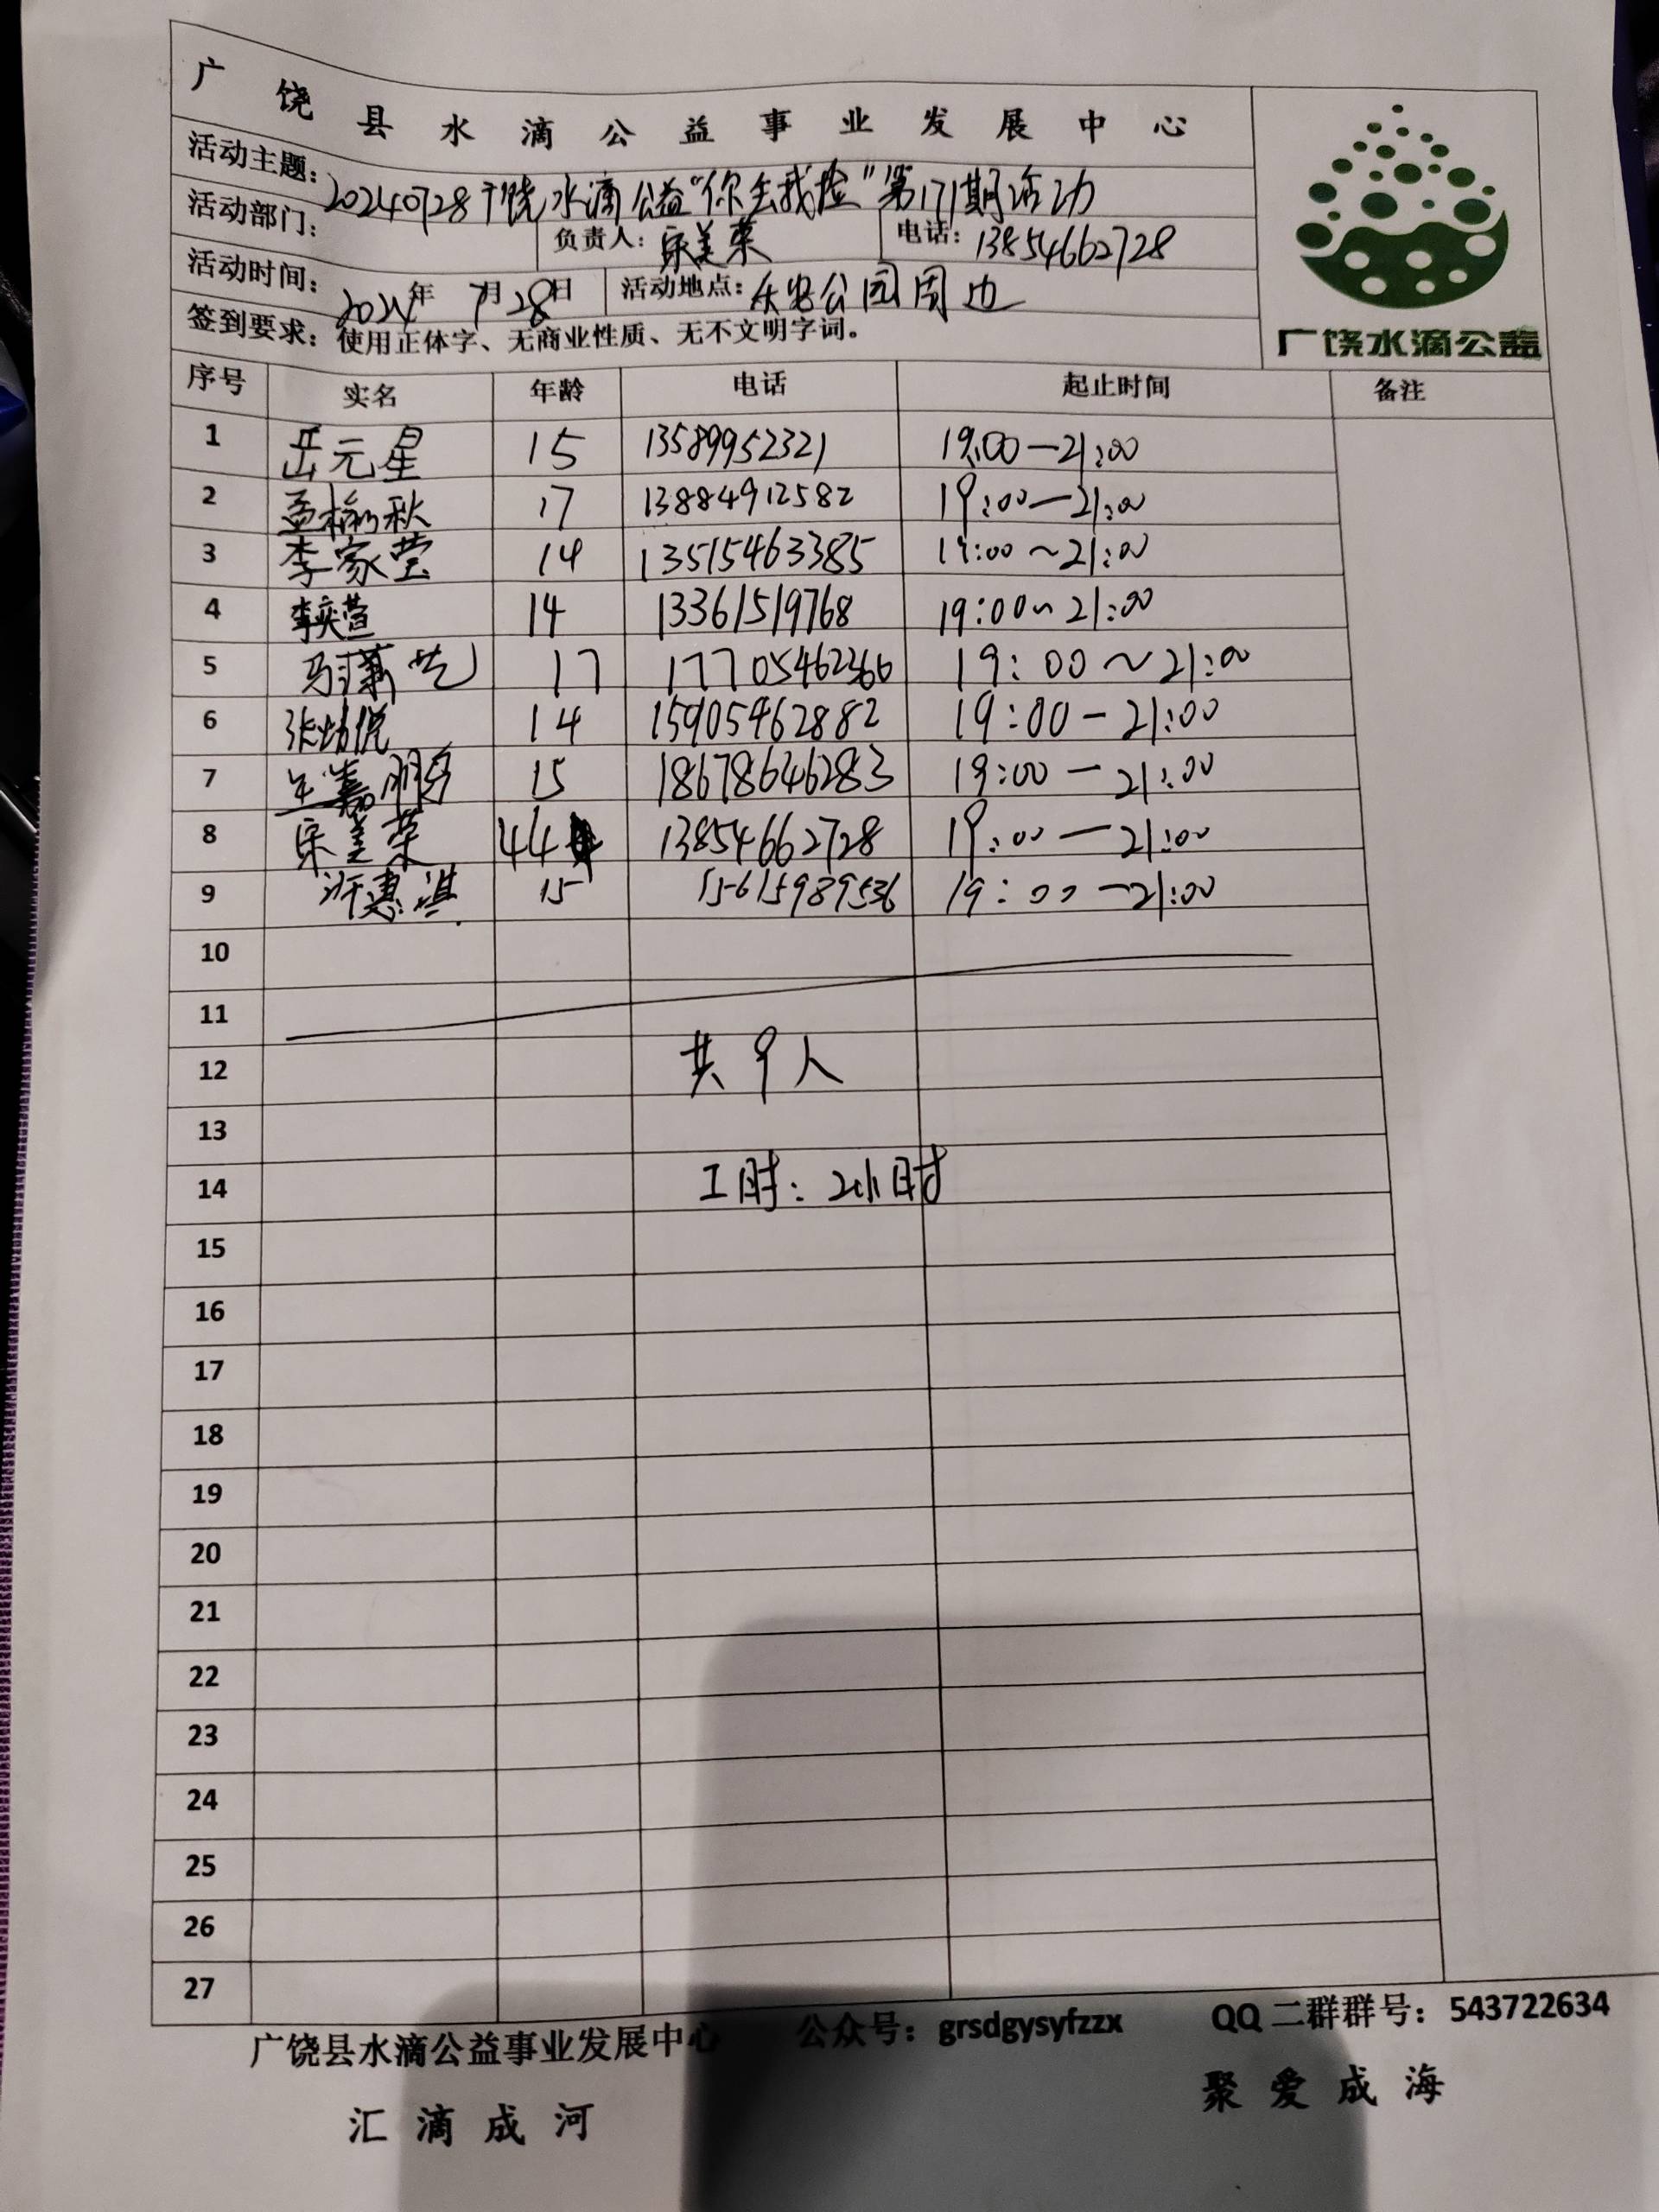 广饶县水滴公益事业发展中心
活动主题：20240728广饶水滴公益“你丢我捡”第171期活动
活动部门： 负责人：宋美荣 电话：13854662728
活动时间：2024年7月28日 活动地点：乐安公园周边
签到要求：使用正体字、无商业性质、无不文明字词。
广饶水滴公益
序号 实名 年龄 电话 起止时间 备注
1 岳元星 15 13589952321 19:00—21:00
2 孟榆秋 17 13884912582 19:00—21:00
3 李家莹 14 13515463385 19:00~21:00
4 李奕萱 14 13361519768 19:00~21:00
5 17 17705462366 19:00~21:00
6 14 15905462882 19:00-21:00
7 15 18678646283 19:00—21:00
8 宋美荣 44 13854662728 19:00—21:00
9 许惠淇 15 15615989536 19:00—21:00
10
11
12 共9人
13
14 工时：2小时
15
16
17
18
19
20
21
22
23
24
25
26
27
广饶县水滴公益事业发展中心 公众号：grsdgysyfzzx QQ二群群号：543722634
汇滴成河 聚爱成海